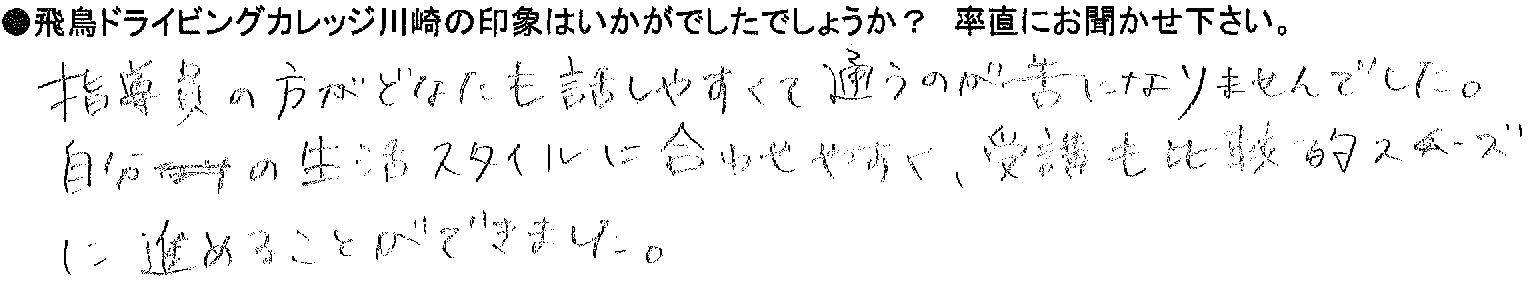 ●飛鳥ドライビングカレッジ川崎の印象はいかがでしたでしょうか？ 率直にお聞かせ下さい。
指導員の方がどなたも話しやすくて通うのが苦になりませんでした。
自分の生活スタイルに合わせやすく、受講も比較的スムーズ
に進めることができました。